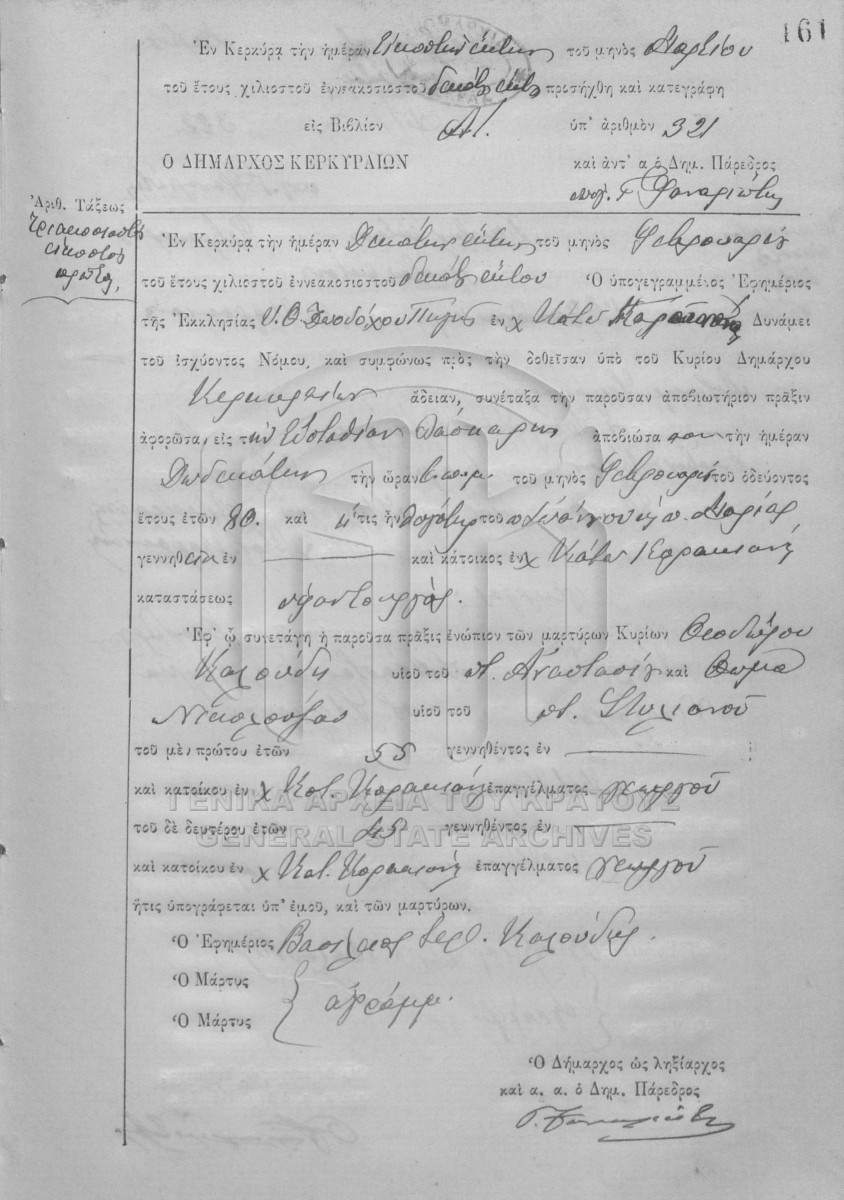 161
Ἐν Κερκύρᾳ τὴν ἡμέραν εἰκοστὴν ἕκτην τοῦ μηνὸς Μαρτίου
τοῦ ἔτους χιλιοστοῦ ἐννεακοσιοστοῦ δεκάτου ἕκτου προσήχθη καὶ κατεγράφη
εἰς Βιβλίον Α! ὑπ' ἀριθμὸν 321
Ὁ ΔΗΜΑΡΧΟΣ ΚΕΡΚΥΡΑΙΩΝ καὶ ἀντ' α ὁ Δημ. Πάρεδρος
Γ Φαναριώτης
Ἀριθ. Τάξεως
τριακοσιοστὸς
εἰκοστὸς
πρῶτος
Ἐν Κερκύρᾳ τὴν ἡμέραν Δεκάτην ἕκτην τοῦ μηνὸς Φεβρουαρίου
τοῦ ἔτους χιλιοστοῦ ἐννεακοσιοστοῦ δεκάτου ἕκτου Ὁ ὑπογεγραμμένος Ἐφημέριος
τῆς Ἐκκλησίας Υ. Θ. Ζωοδόχου Πηγῆς ἐν χ Κάτω Δυνάμει
τοῦ ἰσχύοντος Νόμου, καὶ συμφώνως πρὸς τὴν δοθεῖσαν ὑπὸ τοῦ Κυρίου Δημάρχου
Κερκυραίων ἄδειαν, συνέταξα τὴν παροῦσαν ἀποβιωτήριον πρᾶξιν
ἀφορῶσα, εἰς τὴν Εὐσταθίαν Λάσκαρη ἀποβιώσασαν τὴν ἡμέραν
Δωδεκάτην τὴν ὥραν τοῦ μηνὸς Φεβρουαρίου τοῦ ὁδεύοντος
ἔτους ἐτῶν 80. καὶ ἥτις ἦν θυγάτηρ τοῦ π. Μαρίας
γεννηθεῖσα ἐν καὶ κάτοικος ἐν χ Κάτω Κορακιανῆ
καταστάσεως ὑφαντουργὸς.
Ἐφ' ᾧ συνετάγη ἡ παροῦσα πρᾶξις ἐνώπιον τῶν μαρτύρων Κυρίων Θεοδώρου
Καλούδη υἱοῦ τοῦ π. Ἀναστασίου καὶ Θωμᾶ
Νικολούζου υἱοῦ τοῦ π. Στυλιανοῦ
τοῦ μὲν πρώτου ἐτῶν 55 γεννηθέντος ἐν
καὶ κατοίκου ἐν χ Κατ. Κορακιάνη ἐπαγγέλματος γεωργοῦ
τοῦ δὲ δευτέρου ἐτῶν 45 γεννηθέντος ἐν
καὶ κατοίκου ἐν χ Κατ. Κορακιανῆ ἐπαγγέλματος γεωργοῦ
ἥτις ὑπογράφεται ὑπ' ἐμοῦ, καὶ τῶν μαρτύρων.
Ὁ Ἐφημέριος Βασίλειος Ἱερ. Καλούδης.
Ὁ Μάρτυς
ἀγράμμ.
Ὁ Μάρτυς
Ὁ Δήμαρχος ὡς ληξίαρχος
καὶ α. α. ὁ Δημ. Πάρεδρος
Γ. Φαναριώτης
ΓΕΝΙΚΑ ΑΡΧΕΙΑ ΤΟΥ ΚΡΑΤΟΥΣ
GENERAL STATE ARCHIVES